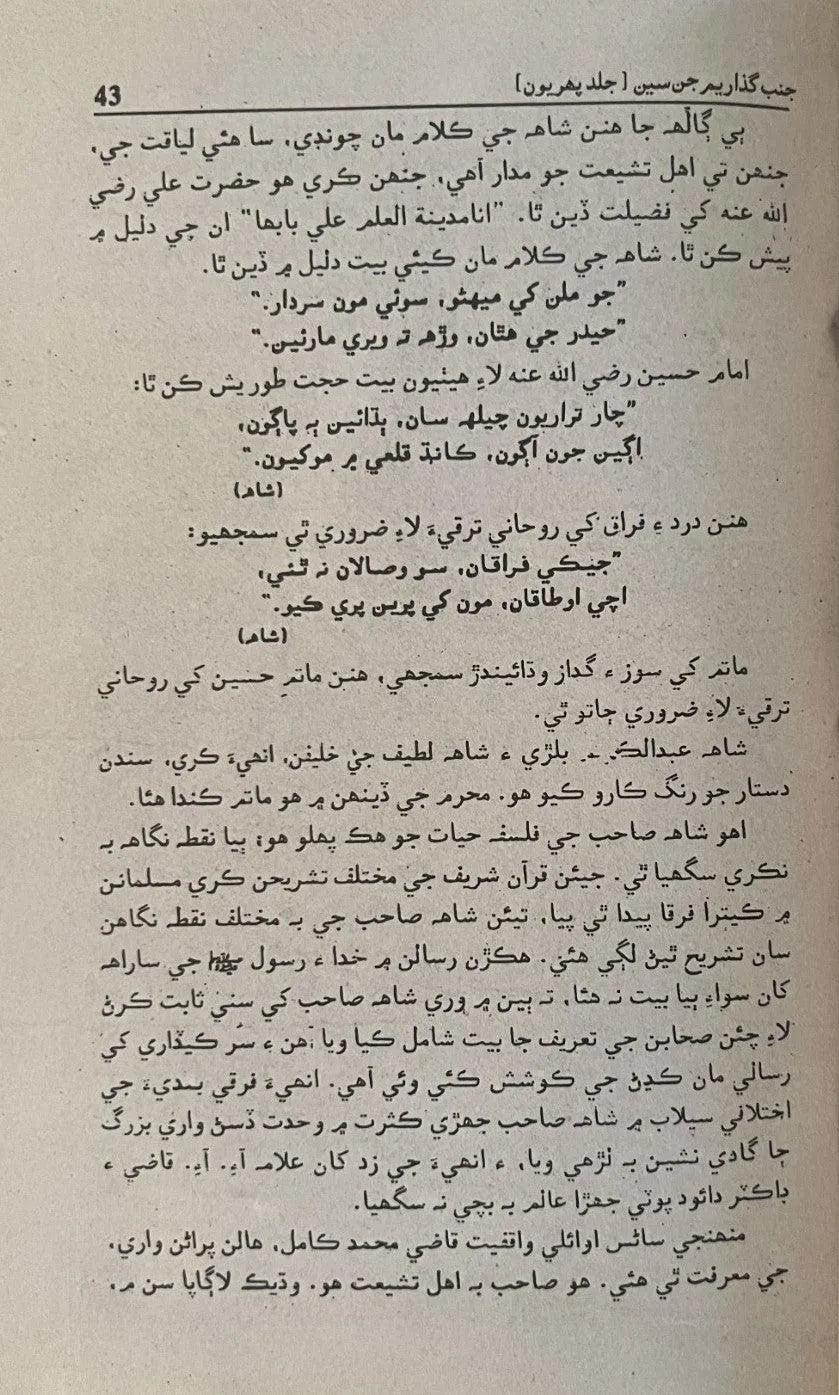 جنب گذاريم جن سين [جلد پهريون]
43
ٻي ڳالهه جا هنن شاهه جي ڪلام مان چونڊي، سا هئي لياقت جي،
جنهن تي اهل تشيعت جو مدار آهي، جنهن ڪري هو حضرت علي رضي
الله عنه کي فضيلت ڏين ٿا. "انامدينة العلم علي بابها" ان جي دليل ۾
پيش ڪن ٿا. شاهه جي ڪلام مان ڪيئي بيت دليل ۾ ڏين ٿا.
"جو ملن کي ميهڻو، سوئي مون سردار."
"حيدر جي هٿان، وڙهه ته ويري مارئين."
امام حسين رضي الله عنه لاءِ هيٺيون بيت حجت طور پيش ڪن ٿا:
"چار تراريون چيلهه سان، ٻڌائين ٻه پاڳون،
اڳين جون آڳون، ڪانڌ قلعي ۾ موڪيون."
(شاهه)
هنن درد ۽ فراق کي روحاني ترقيءَ لاءِ ضروري ٿي سمجهيو:
"جيڪي فراقان، سو وصالان نه ٿئي،
اچي اوطاقان، مون کي پرين پري ڪيو."
(شاهه)
ماتم کي سوز ۽ گداز وڌائيندڙ سمجهي، هنن ماتم حسين کي روحاني
ترقيءَ لاءِ ضروري ڄاتو ٿي.
شاهه بلڙي ۽ شاهه لطيف جي خليفن، انهيءَ ڪري، سندن
دستار جو رنگ ڪارو ڪيو هو. محرم جي ڏينهن ۾ هو ماتم ڪندا هئا.
اهو شاهه صاحب جي فلسفه حيات جو هڪ پهلو هو؛ ٻيا نقطه نگاهه به
نڪري سگهيا ٿي. جيئن قرآن شريف جي مختلف تشريحن ڪري مسلمانن
۾ ڪيترا فرقا پيدا ٿي پيا، تيئن شاهه صاحب جي به مختلف نقطه نگاهن
سان تشريح ٿيڻ لڳي هئي. هڪڙن رسالن ۾ خدا ۽ رسول ﷺ جي ساراهه
کان سواءِ ٻيا بيت نه هئا، ته ٻين ۾ وري شاهه صاحب کي سني ثابت ڪرڻ
لاءِ چئن صحابن جي تعريف جا بيت شامل ڪيا ويا آهن ۽ سُر ڪيڏاري کي
رسالي مان ڪڍڻ جي ڪوشش ڪئي وئي آهي. انهيءَ فرقي بنديءَ جي
اختلافي سيلاب ۾ شاهه صاحب جهڙي ڪثرت ۾ وحدت ڏسڻ واري بزرگ
جا گادي نشين به لڙهي ويا، ۽ انهيءَ جي زد کان علامه آءِ. آءِ. قاضي ۽
ڊاڪٽر دائود پوٽي جهڙا عالم به بچي نه سگهيا.
منهنجي ساڻس اوائلي واقفيت قاضي محمد ڪامل، هالن پراڻن واري،
جي معرفت ٿي هئي. هو صاحب به اهل تشيعت هو. وڌيڪ لاڳاپا سن ۾،